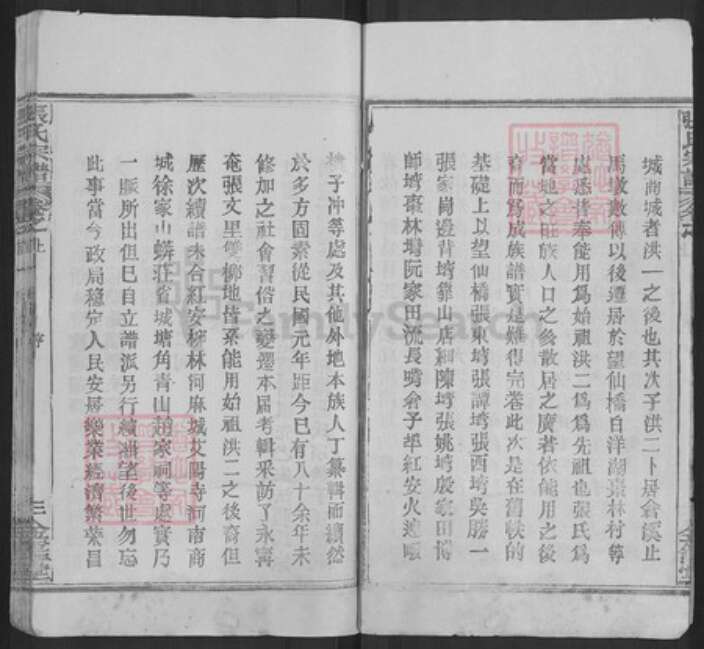 城商城者洪一之後也其次子洪二卜居倉溪止
馬墩數傳以後遷居於望仙橋白洋湖棗林村等
處悉皆奉能用為始祖洪二為為先祖也張氏為
當地之旺族人口之發散居之廣若依能用之後
育而為成族譜實是難得完卷此次是在舊帙的
基礎上以望仙橋張東塆張譚塆張西塆吳勝一
張家崗邊背塆靠山店細陳塆張姚塆殷家田博
師塆棗林塆阮家田流長嘴倉子 紅安火連畈
子沖等處及其他外地本族人丁纂輯而續然
於多方因素從民國元年距今已有八十余年未
修加之社會習俗之變遷本屆考輯采訪了永甯
奄張文里雙 地皆系能用始祖洪二之後裔但
歷次續譜未合紅安柳林河麻城艾陽寺河南商
城徐家山蟒莊省城塘角青山趙家祠等處實乃
一脈所出但巳自立譜派另行續 望後世勿忘
此事當今政局穩定人民安居樂業經濟繁榮昌
張氏宗譜
卷之上
序
三